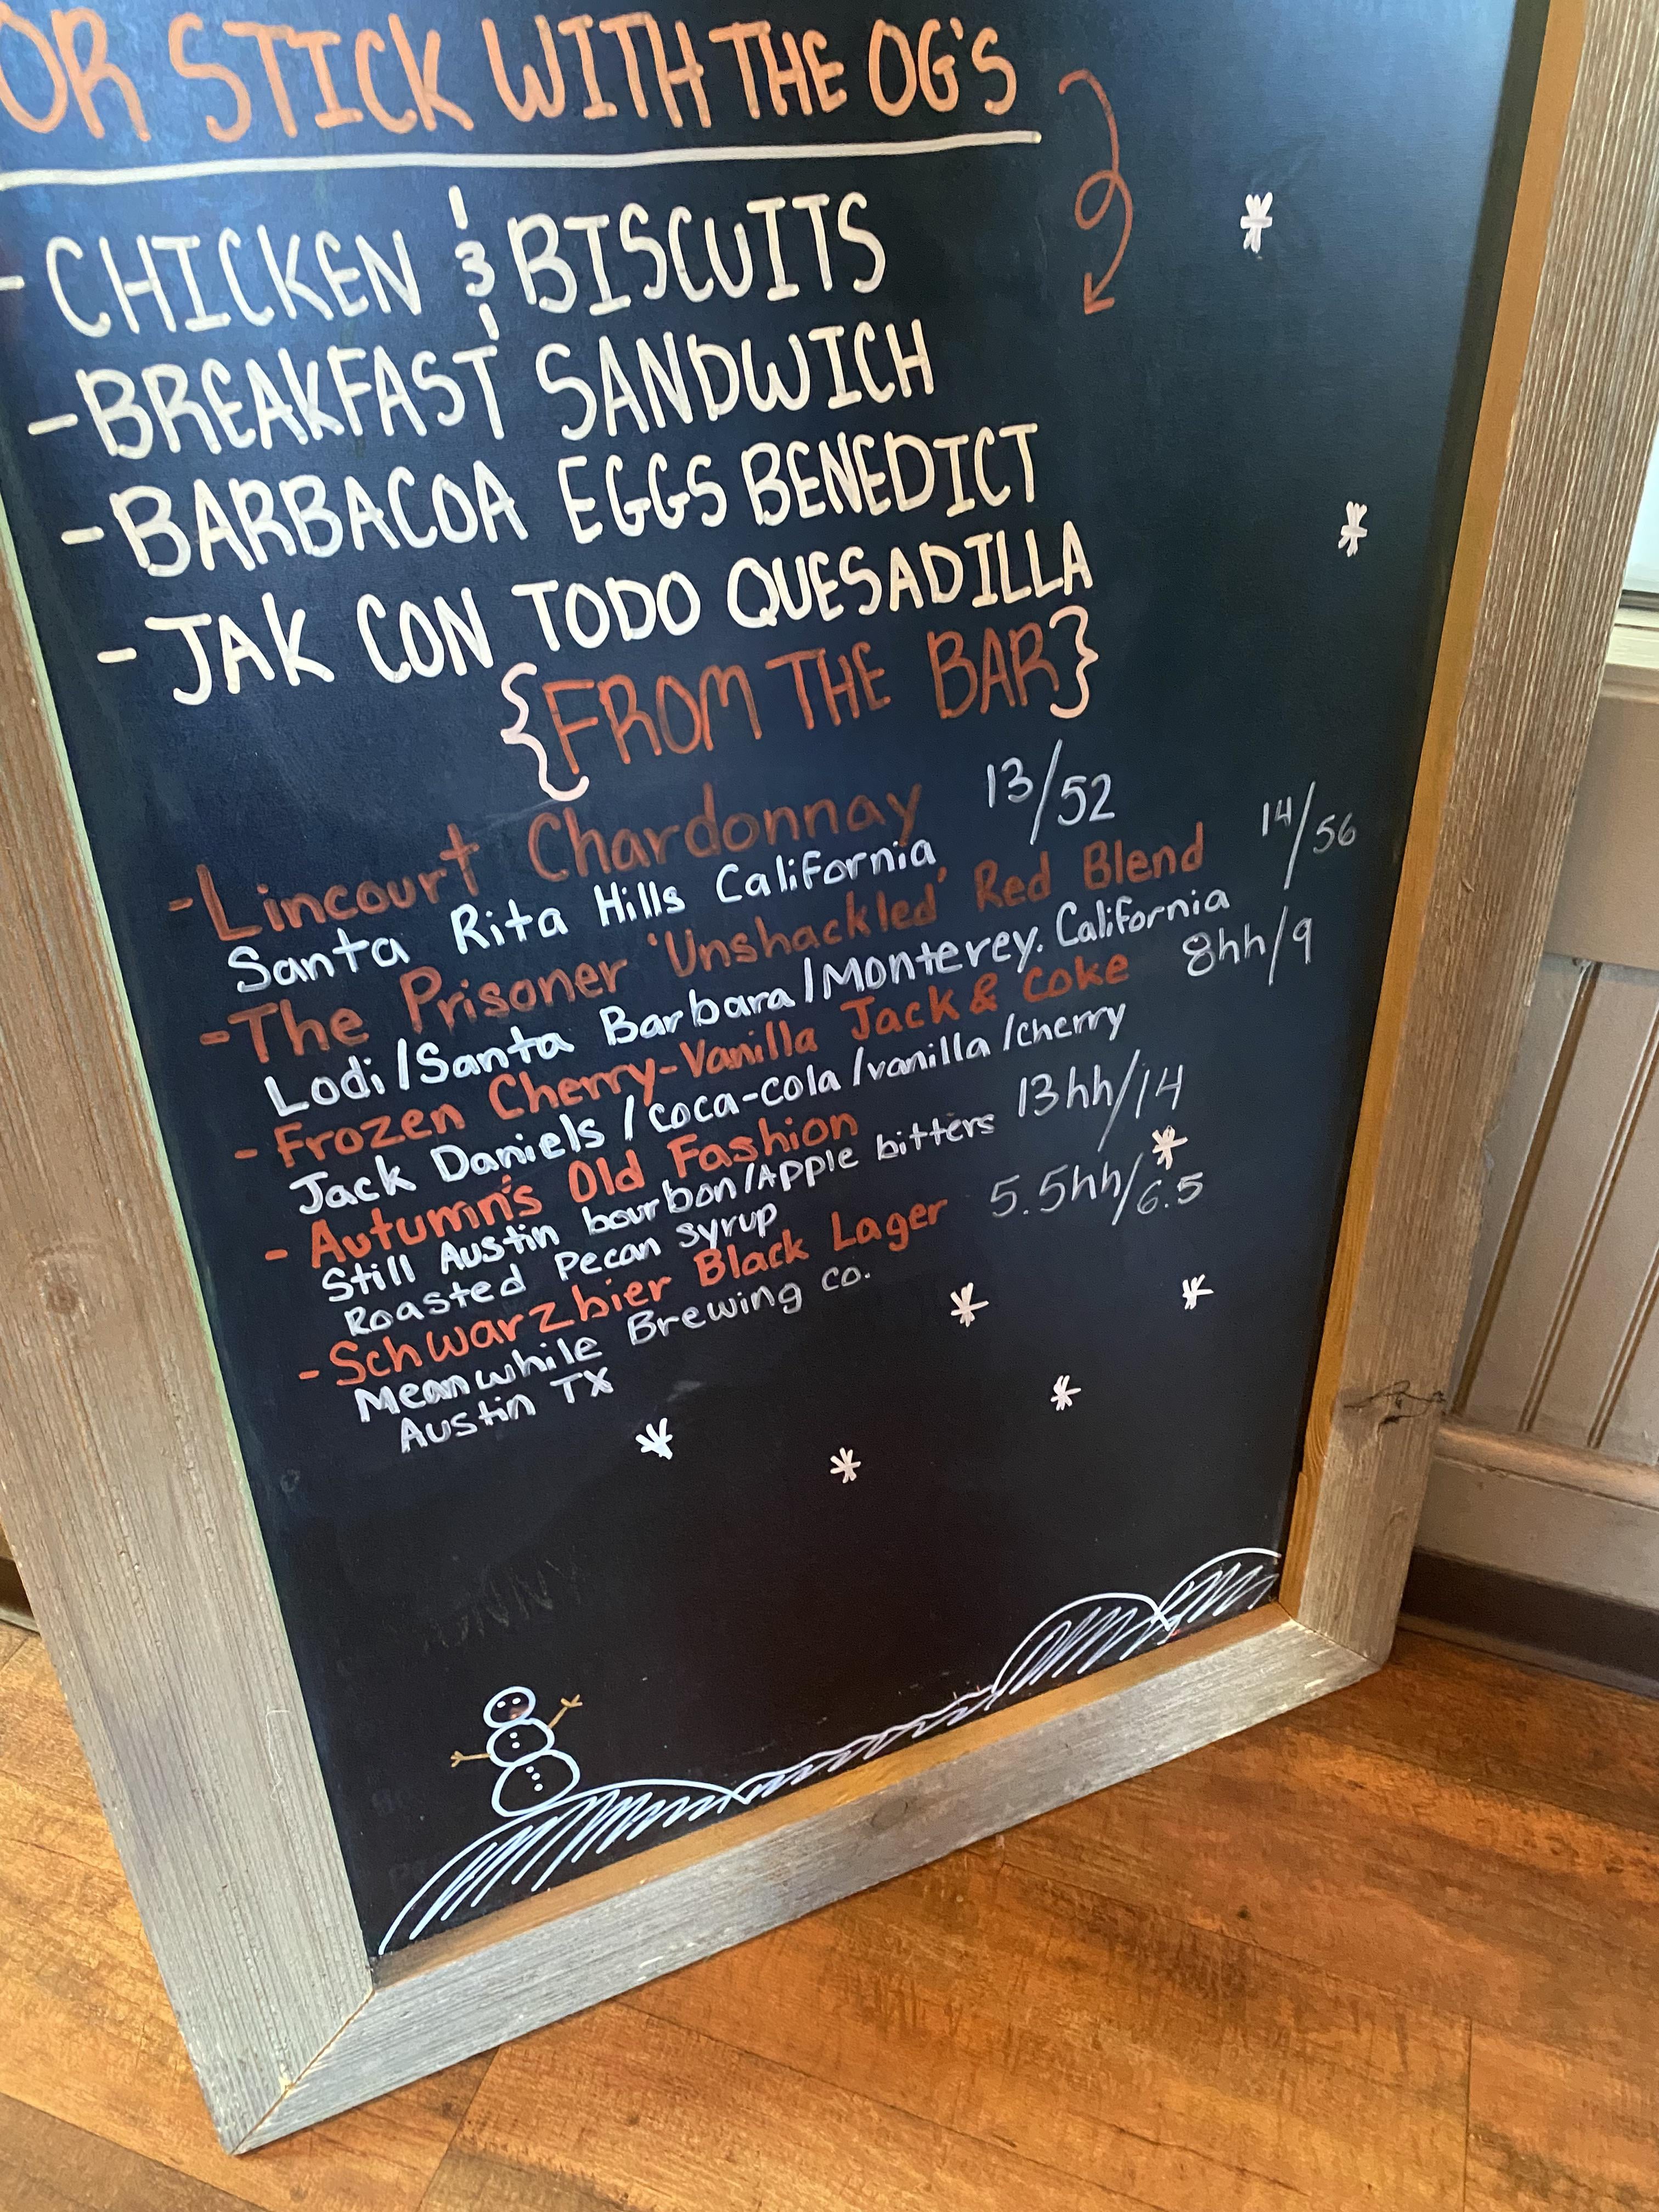 OR STICK WITH THE OG'S
- CHICKEN & BISCUITS
- BREAKFAST SANDWICH
- BARBACOA EGGS BENEDICT
- JAK CON TODO QUESADILLA
{FROM THE BAR}
- Lincourt Chardonnay 13/52
Santa Rita Hills California
- The Prisoner 'Unshackled' Red Blend 14/56
Lodi/Santa Barbara/Monterey. California
- Frozen Cherry-Vanilla Jack & Coke 8hh/9
Jack Daniels/Coca-Cola/vanilla/cherry
- Autumn's Old Fashion 13hh/14
Still Austin bourbon/Apple bitters
Roasted Pecan syrup
- Schwarzbier Black Lager 5.5hh/6.5
Meanwhile Brewing co.
Austin TX